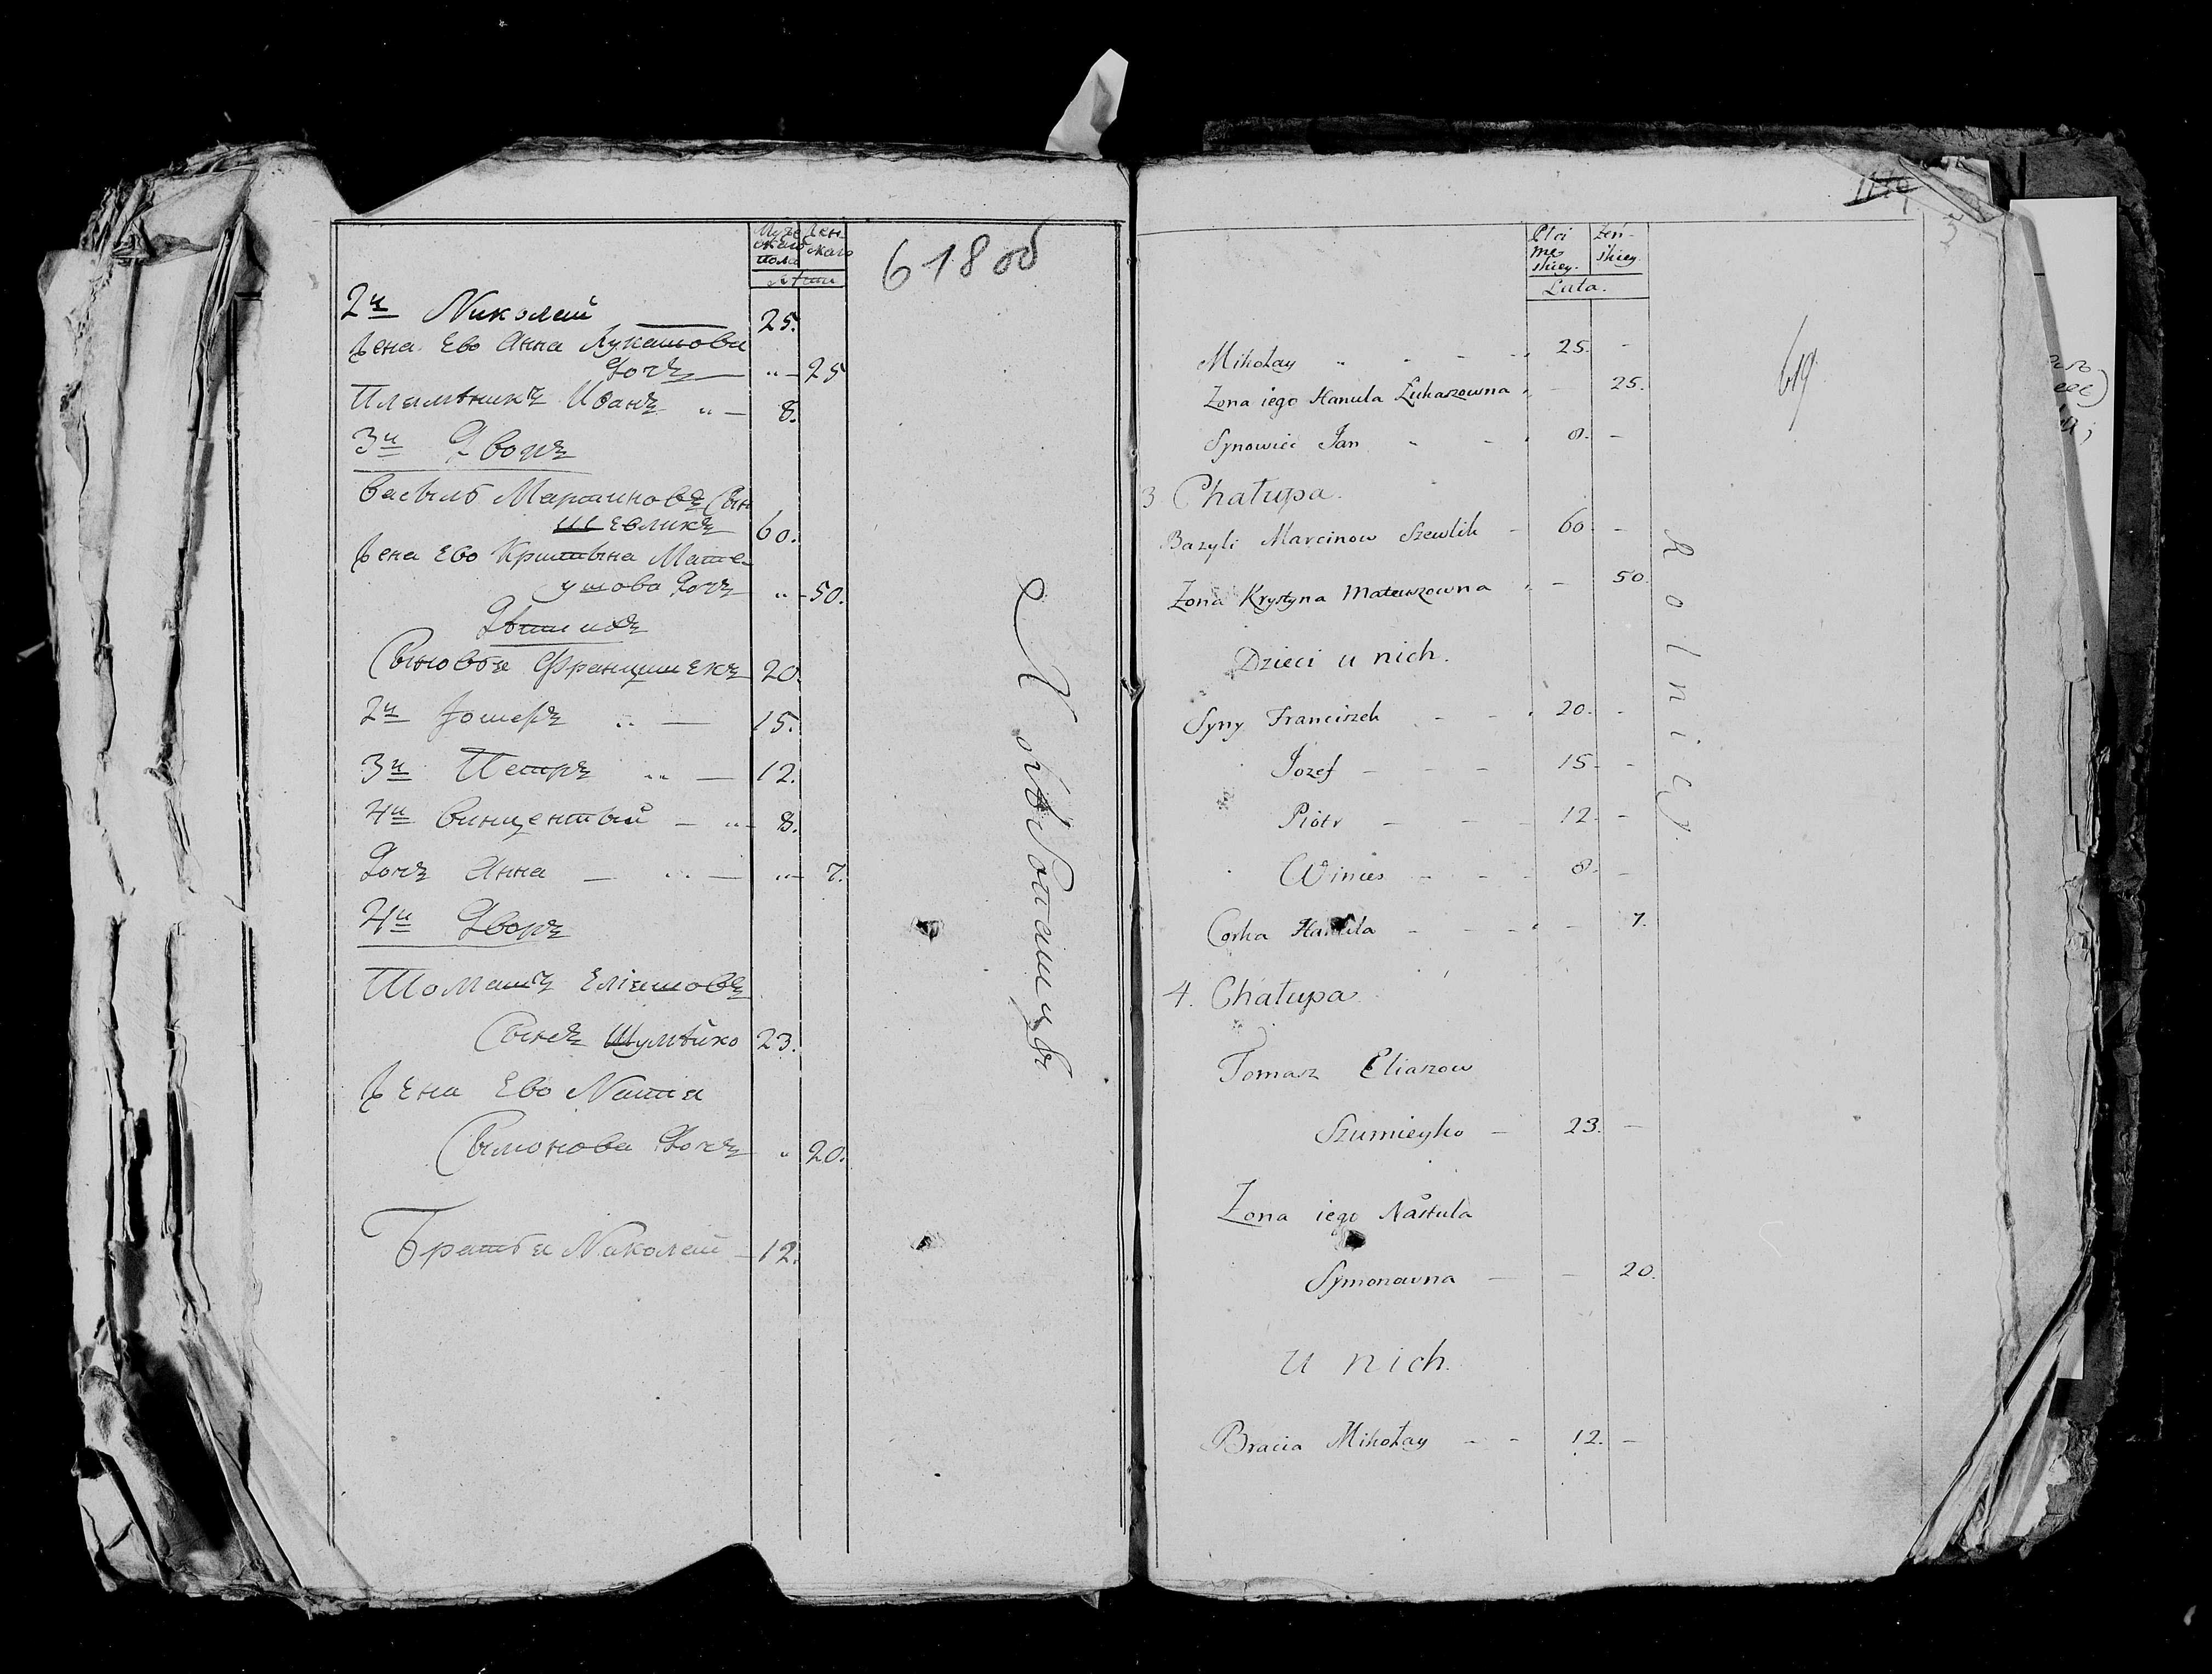 618 об
Муже
скаго
пола
Жен
скаго
Лѣта
2й Николай 25.
Жена Ево Анна Лукашова
Дочъ " 25
Племѣникъ Иванъ " 8.
3й Дворъ
Васыль Мартиновъ Сын
Шевликъ 60.
Жена Ево Криштына Мате-
ушова Дочъ " 50.
Дѣти ихъ
Сыновья Францишекъ 20.
2й Іошефъ " 15.
3й Петръ " 12.
4й Винцентый " 8.
Дочъ Анна " 7.
4й Дворъ
Томашъ Еліяшовъ
Сынъ Шумѣйко 23.
Жена Ево Настя
Сымонова Дочъ " 20.
Братья Николай 12.
Płci
męs
skiey.
żeń-
skiey.
Lata.
619
Mikołay 25. -
Zona iego Hanula Łukaszowna - 25.
Synowiec Jan 8. -
3 Chałupa.
Bazyli Marcinow Szewlik 60. -
Zona Krystyna Mateuszowna - 50.
Dzieci u nich.
Syny Franciszek 20. -
Jozef 15. -
Piotr 12. -
Winces 8. -
Corka Hanula - 7.
4. Chałupa
Tomasz Eliaszow
Szumieyko 23. -
Zona iego Nastula
Symonowna - 20.
u nich.
Bracia Mikołay 12. -
Rolnicy.